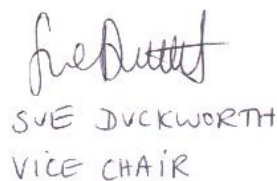 SUE DUCKWORTH
VICE CHAIR